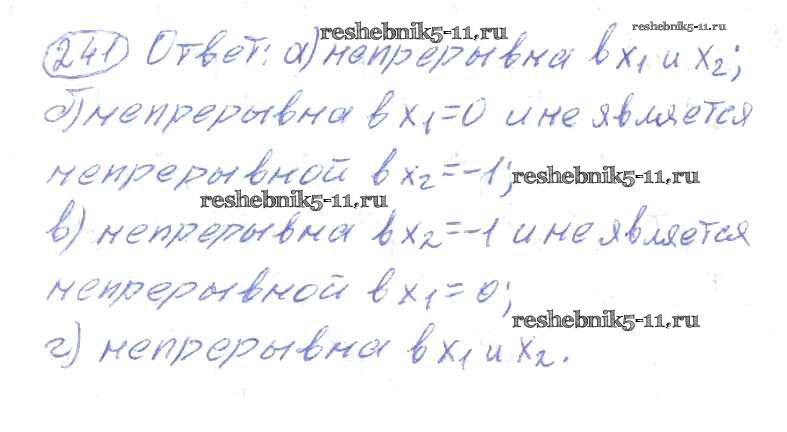 reshebnik5-11.ru
reshebnik5-11.ru
241 Ответ: а) непрерывна в x₁ и x₂;
б) непрерывна в x₁=0 и не является
непрерывной в x₂=-1;
reshebnik5-11.ru
reshebnik5-11.ru
в) непрерывна в x₂=-1 и не является
непрерывной в x₁=0;
reshebnik5-11.ru
г) непрерывна в x₁ и x₂.